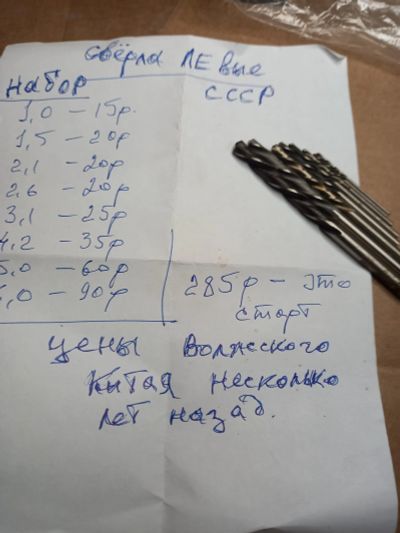 свёрла ЛЕвые
набор
СССР
1,0 – 15р.
1,5 – 20р
2,1 – 20р
2,6 – 20р
3,1 – 25р
4,2 – 35р
5,0 – 60р
,0 – 90р
285р – это
старт
цены Волжского
Китая несколько
лет назад.